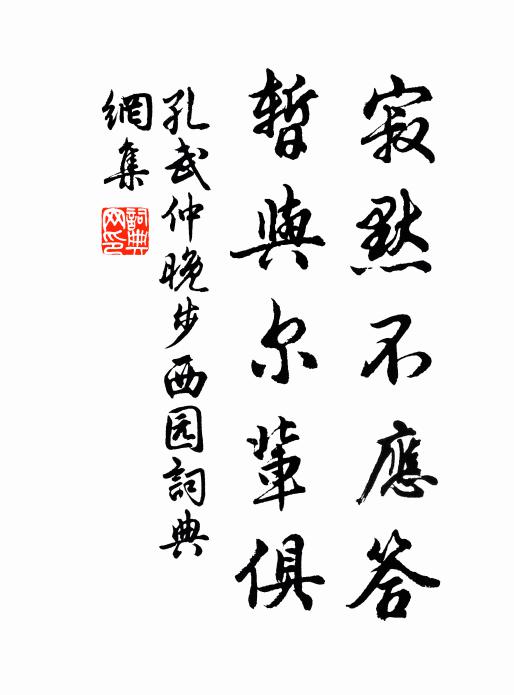 寂默不應答
暫與尔輩俱
孔武仲晚步西园詞典
網集
詞典
网印